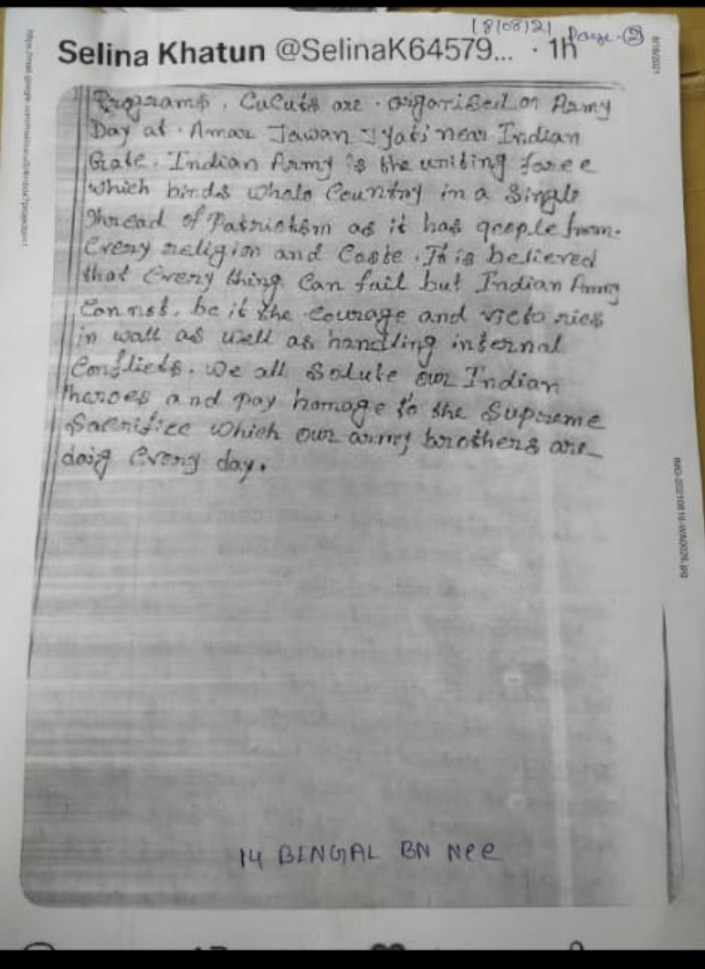 18/08/21 Page-(2)
Selina Khatun @SelinaK64579... · 1h
8/18/2021
Programs, CuCuts are organised on Army
Day at Amar Jawan Jyati near Indian
Gate. Indian Army is the uniting foree
which binds whole Country in a Single
thread of Patriotism as it has people from
Every religion and Caste. It is believed
that Every thing Can fail but Indian Army
Can not, be it the courage and victories
in watt as well as handling internal
Conflicts. We all Salute our Indian
heroes and pay homage to the Supreme
Sacrifice which our army brothers are
doig Every day.
14 BENGAL BN Nee